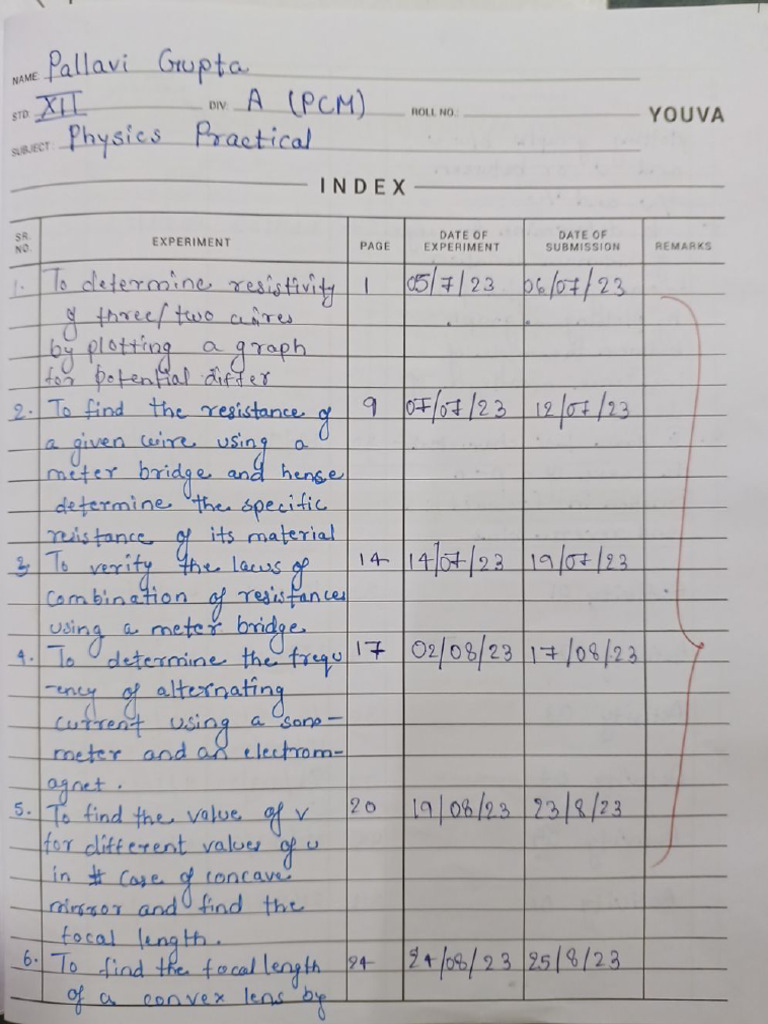 NAME: Pallavi Gupta
STD.: XII DIV.: A (PCM) ROLL NO.: YOUVA
SUBJECT: Physics Practical
INDEX
SR. NO. EXPERIMENT PAGE DATE OF EXPERIMENT DATE OF SUBMISSION REMARKS
1. To determine resistivity 1 05/7/23 06/07/23
of three/two wires
by plotting a graph
for potential differ
2. To find the resistance of 9 07/07/23 12/07/23
a given wire using a
meter bridge and hense
determine the specific
reistance of its material
3. To verity the laws of 14 14/07/23 19/07/23
combination of resistances
using a meter bridge.
4. To determine the frequ 17 02/08/23 17/08/23
-ency of alternating
current using a sono-
meter and an electrom-
agnet.
5. To find the value of v 20 19/08/23 23/8/23
for different values of u
in case of concave
mirror and find the
focal length.
6. To find the focal length 24 24/08/23 25/8/23
of a convex lens by